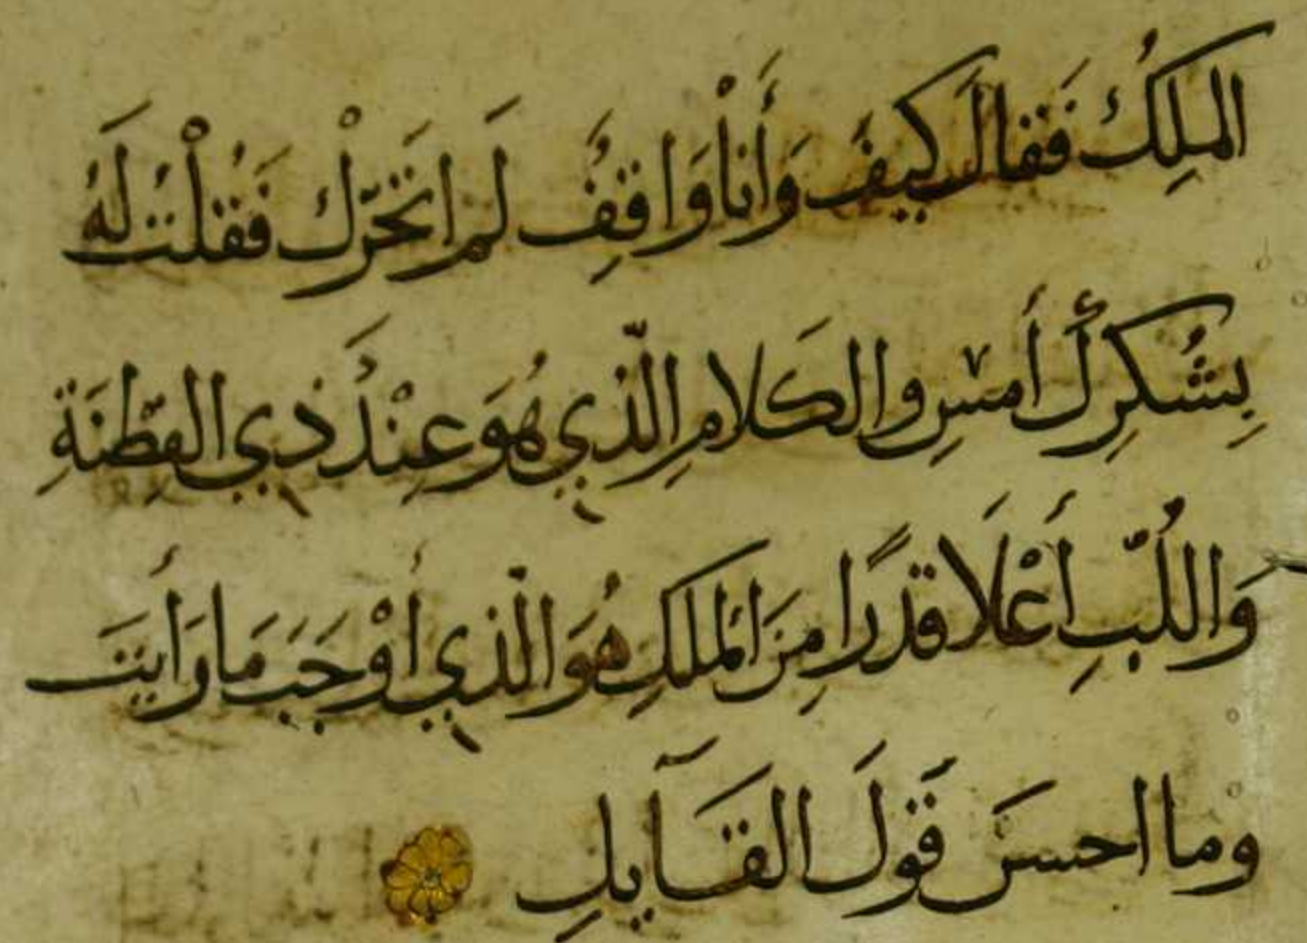 الملِكُ فَقَالَ كيفَ وَأَنَا وَاقِفُ لَم اتَحَرّكْ فَقُلْتُ لَهُ
بِشُكرِكَ أَمسِ والكَلامِ الّذي هُوَ عِنْدَ ذي الفِطْنَةِ
وَاللُبِّ أَعْلَا قدْرًا مِنَ الملكِ هُوَ الّذي أَوْجَبَ مَا رَأَيتَ
وما احسنَ قَولَ القَآيلِ